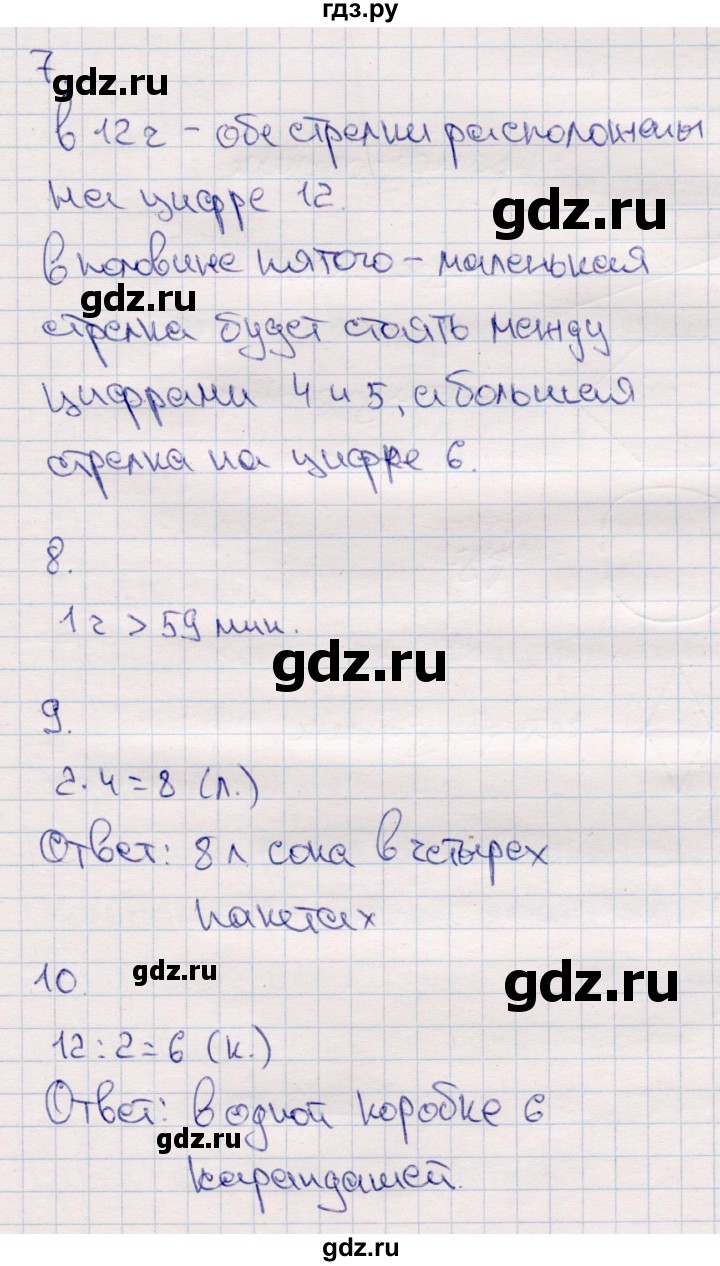 гдз.ру
7
gdz.ru
в 12 ч – обе стрелки расположены
на цифре 12.
gdz.ru
в половине пятого – маленькая
gdz.ru
стрелка будет стоять между
цифрами 4 и 5, а большая
стрелка на цифре 6.
8.
1 ч > 59 мин.
gdz.ru
9.
2·4=8 (л.)
Ответ: 8 л сока в четырех
пакетах
10.
gdz.ru
gdz.ru
12:2=6 (к.)
Ответ: в одной коробке 6
gdz.ru
карандашей.
gdz.ru